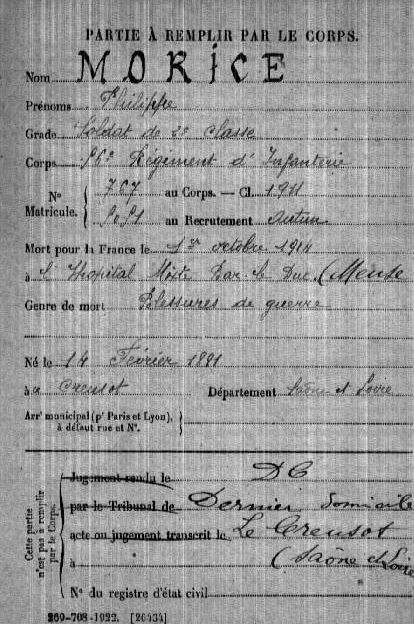 PARTIE À REMPLIR PAR LE CORPS.
Nom MORICE
Prénoms Philippe
Grade Soldat de 2e classe
Corps 56e Régiment d'Infanterie
N° Matricule. 767 au Corps. — Cl. 1911
au Recrutement Autun
Mort pour la France le 1er octobre 1914
à l'hopital Mixte Bar-le-Duc (Meuse
Genre de mort Blessures de guerre
Né le 14 Février 1891
à u Creusot Département Saône et Loire
Arrt municipal (pr Paris et Lyon),
à défaut rue et N°.
Cette partie n'est pas à remplir par le Corps.
Jugement rendu le DC
par le Tribunal de Dernier domicile
acte ou jugement transcrit le Le Creusot
à (Saône et Loire
N° du registre d'état civil
269-708-1922. [26434]